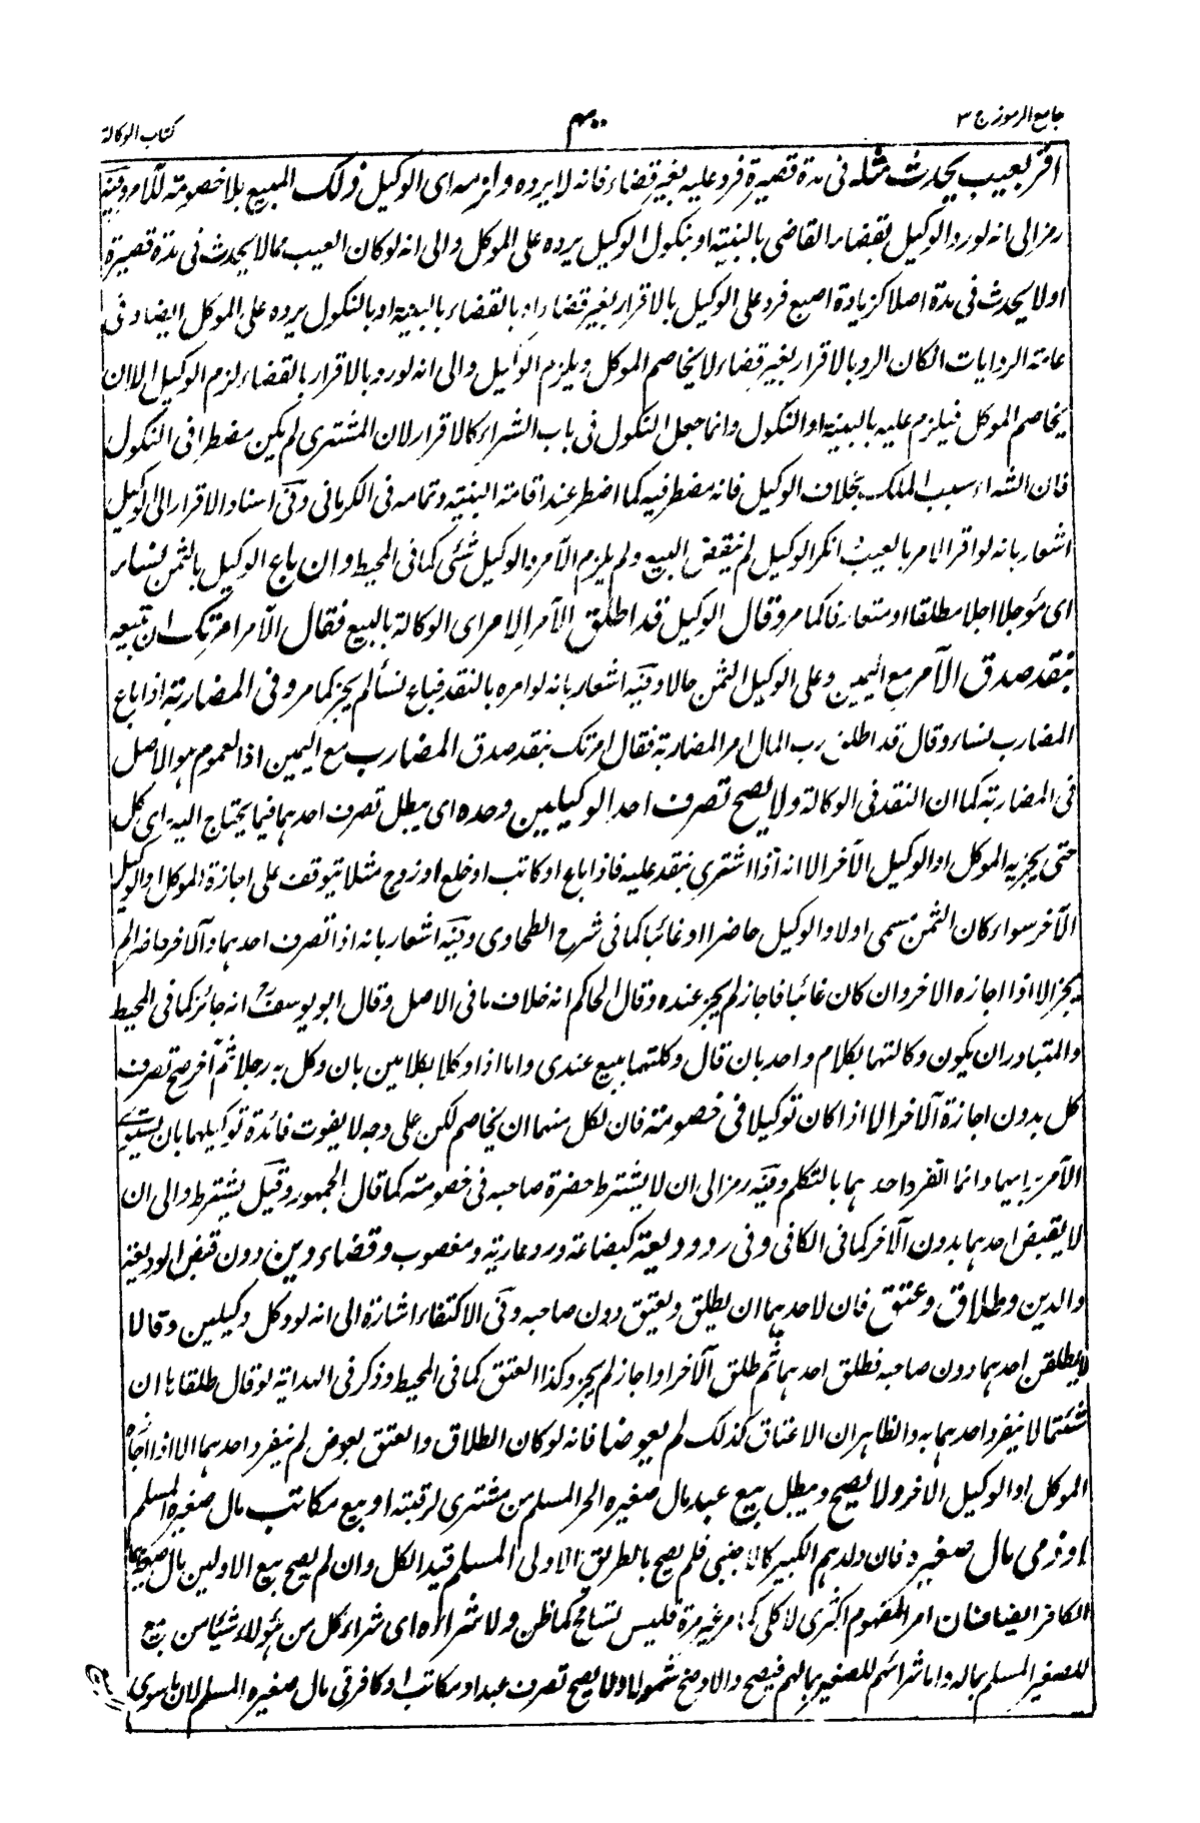 جامع الرموز ج ٣
٤٠٠
كتاب الوكالة
اقر بعيب يحدث مثله فى مدة قصيرة فرد عليه بغير قضاء فانه لا يرده ولزمه اى الوكيل ذلك المبيع بلا خصومته للآمر وفيه
رمز الى انه لو رد الوكيل بقضاء القاضى بالبنيته او بنكول الوكيل يرده على الموكل والى انه لو كان العيب مما لا يحدث فى مدة قصيرة
او لا يحدث فى مدة اصلا كزيادة اصبع فرد على الوكيل بالاقرار بغير قضاء او بالقضاء بالبينة او بالنكول يرده على الموكل ايضا وفى
عامة الروايات ان كان الرد بالاقرار بغير قضاء لا يخاصم الموكل ويلزم الوكيل والى انه لو رد بالاقرار بالقضاء لزم الوكيل الا ان
يخاصم الموكل فيلزم عليه بالبينة او النكول وانما جعل النكول فى باب الشراء كالاقرار لان المشترى لم يكن مضطرا فى النكول
فان الشراء سبب الملك بخلاف الوكيل فانه مضطر فيه كما اضطر عند اقامة البنية وتمامه فى الكرمانى وفى اسناد الاقرار الى الوكيل
اشعار بانه لو اقر الامر بالعيب انكر الوكيل لم ينقض البيع ولم يلزم الآمر والوكيل شئى كما فى المحيط وان باع الوكيل بالثمن نساء
اى مؤجلا اجلا مطلقا او متعارفا كما مر وقال الوكيل قد اطلق الآمر الامر اى الوكالة بالبيع فقال الآمر امرتك ان تبيعه
بنقد صدق الآمر مع اليمين وعلى الوكيل الثمن حالا وفيه اشعار بانه لو امره بالنقد فباع نسأ لم يجز كما مر وفى المضاربة اذا باع
المضارب نساء وقال قد اطلق رب المال امر المضاربة فقال امرتك بنقد صدق المضارب مع اليمين اذ العموم هو الاصل
فى المضاربة كما ان النقد فى الوكالة ولا يصح تصرف احد الوكيلين وحده اى يبطل تصرف احدهما فيما يحتاج اليه اى كل
حتى يجزيه الموكل او الوكيل الآخر الا انه اذا اشترى بنقد عليه فاذا باع او كاتب او خلع او زوج مثلا يتوقف على اجازة الموكل او الوكيل
الآخر سواء كان الثمن مسمى اولا والوكيل حاضرا او غائبا كما فى شرح الطحاوى وفيه اشعار بانه اذا تصرف احدهما والآخر حاضر لم
يجز الا اذا اجازه الاخر وان كان غائبا فاجاز لم يجز عنده وقال الحاكم انه خلاف ما فى الاصل وقال ابو يوسف انه جائز كما فى المحيط
والمتبادر ان يكون وكالتهما بكلام واحد بان قال وكلتهما ببيع عبدى واما اذا وكلا بكلامين بان وكل به رجلا ثم آخر صح تصرف
كل بدون اجازة الآخر الا اذا كان توكيلا فى خصومته فان لكل منهما ان يخاصم لكن على وجه لا يفوت فائدة توكيلهما بان يستوى
الآمر رايهما وانما انفرد احدهما بالتكلم وفيه رمز الى ان لا يشترط حضرة صاحبه فى خصومته كما قال الجمهور وقيل يشترط والى ان
لا يقبض احدهما بدون الآخر كما فى الكافى وفى رد وديعة كبضاعة ورد عارية ومغصوب وقضاء دين دون قبض الوديعة
والدين وطلاق وعتق فان لاحدهما ان يطلق ويعتق دون صاحبه وفى الاكتفاء اشارة الى انه لو وكل وكيلين وقالا
لا يطلقن احدهما دون صاحبه فطلق احدهما ثم طلق الآخر او اجاز لم يجز وكذا العتق كما فى المحيط وذكر فى الهداية لو قال طلقاها ان
شئتما لا ينفرد احدهما به والظاهر ان الاعتاق كذلك لم يعوضا فانه لو كان الطلاق والعتق بعوض لم ينفرد احدهما الا اذا اجازه
الموكل او الوكيل الاخر ولا يصح ويبطل بيع عبد مال صغيره الحر المسلم من مشترى لرقبته او بيع مكاتب مال صغيره المسلم
او ذمى مال صغيره فان ولدهم الكبير كالاجنبى فلم يصح بالطريق الاولى المسلم قيد الكل وان لم يصح بيع الاولين مال صغيرهما
الكافر ايضا فان امر المفهوم اكثرى لا كلى كما مر غير مرة فليس تسامح كما ظن ولا شراؤه اى شراء كل من هؤلاء شيئا من بيع
للصغير المسلم بماله واما شرائهم للصغير بمالهم فيصح والاوضح شمولا ولا يصح تصرف عبد او مكاتب او كافر فى مال صغيره المسلم لان ما سوى